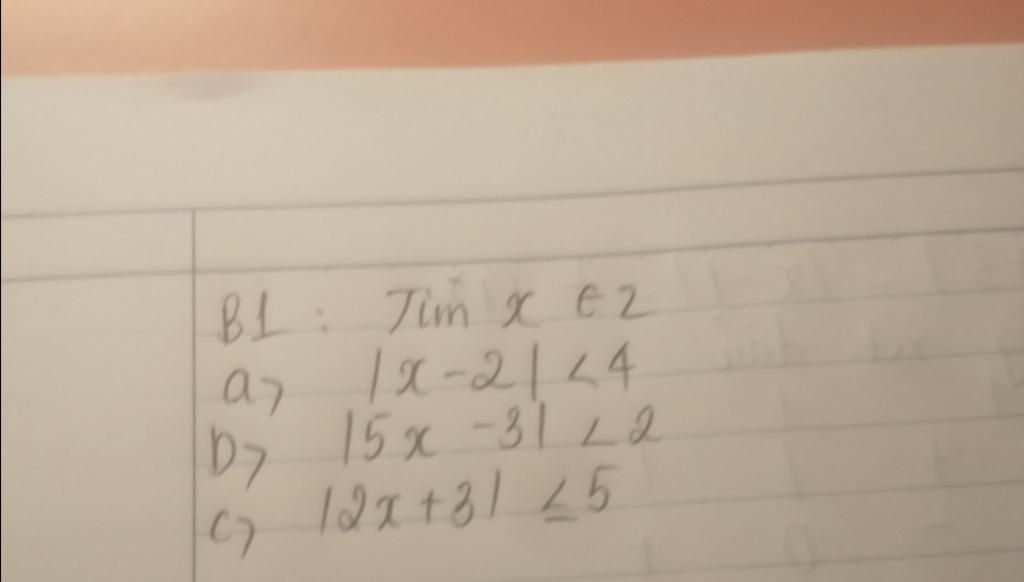 B1 : Tìm x ∈ Z
a> |x - 2| < 4
b> |5x - 3| < 2
c> |2x + 3| ≤ 5